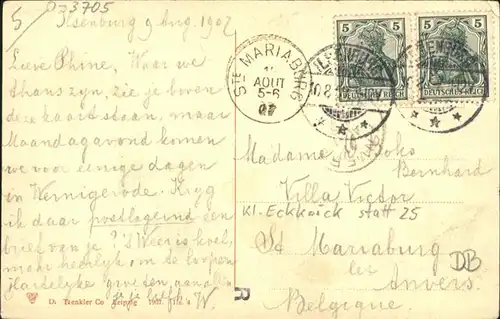 5
033705
Ilsenburg 9 Aug. 1907
Lieve Phine, Waar we
thans zijn, zie je boven
deze kaart staan, maar
Maandagavond komen
we voor eenige dagen
in Wernigerode. Kryg
ik daar postlagernd een
brief van je? 't Weer is koel,
maar heerlijk om te loopen
Hartelijke groeten, aan
W.
D. Trenkler Co Leipzig 1907.
STE MARIABURG
11
AOUT
5-6
07
10.8
5 5
DEUTSCHES REICH
5 5
DEUTSCHES REICH
Madame
Bernhard
Villa Victor
Kl. Eckhoick statt 25
St Mariaburg
lez
Anvers.
Belgique.
DB
R